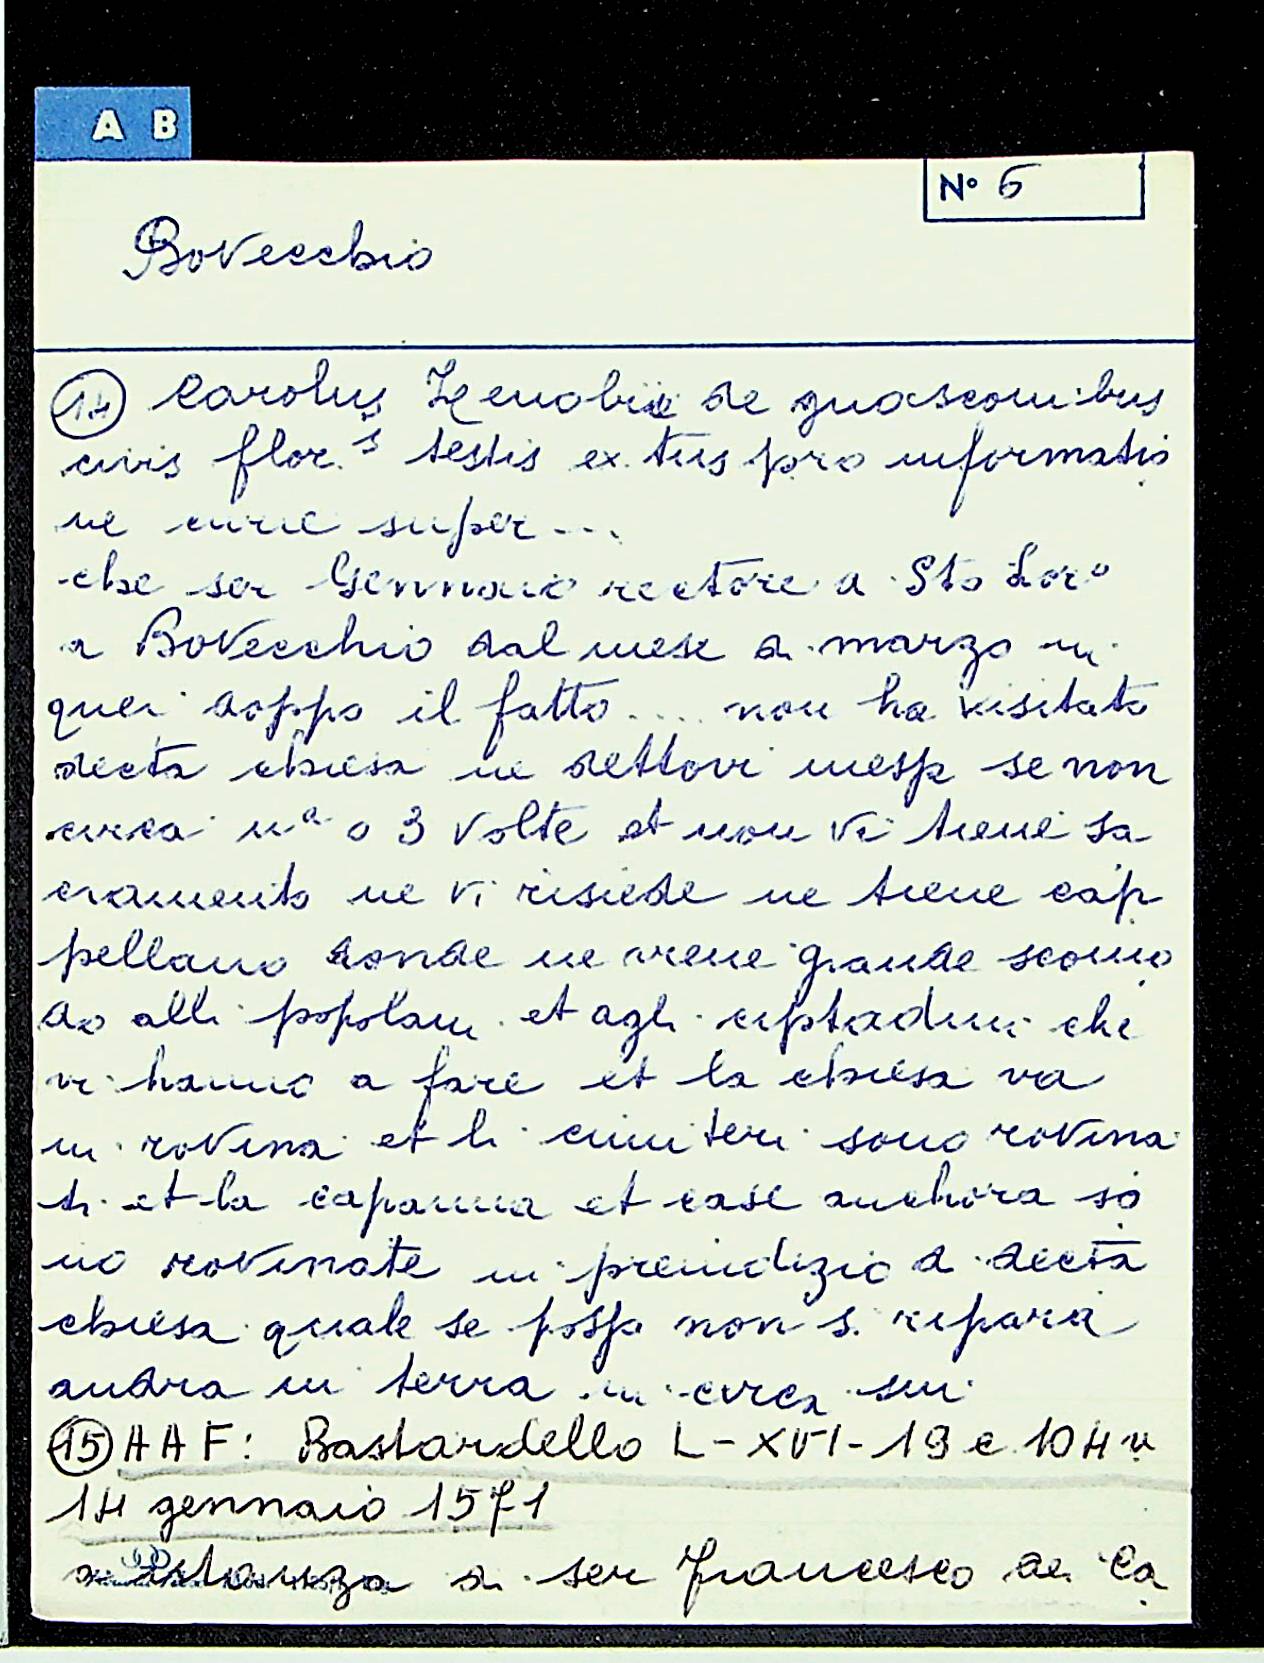 A B
N° 6
Bovecchio
14 Carolus Zenobii de guasconibus
civis flor.s testis ex.tus pro informatio
ne curie super ...
che ser Gennaio rectore a Sto Lor°
a Bovecchio dal mese di marzo in
quei doppo il fatto .... non ha visitato
decta chiesa ne dettovi messa se non
circa na o 3 volte et non vi tiene sa
cramento ne vi risiede ne tiene cap
pellano donde ne viene grande scomo
do alli popolani et agli ciptadini che
vi hanno a fare et la chiesa va
in rovina et li cimiteri sono rovina
ti et la capanna et case anchora so
no rovinate in preiudizio di decta
chiesa quale se non si ripara
andra in terra in circa
15 A A F: Bastardello L-XVI-19 c 104 v
14 gennaio 1571
a istanza di ser Francesco de Ca